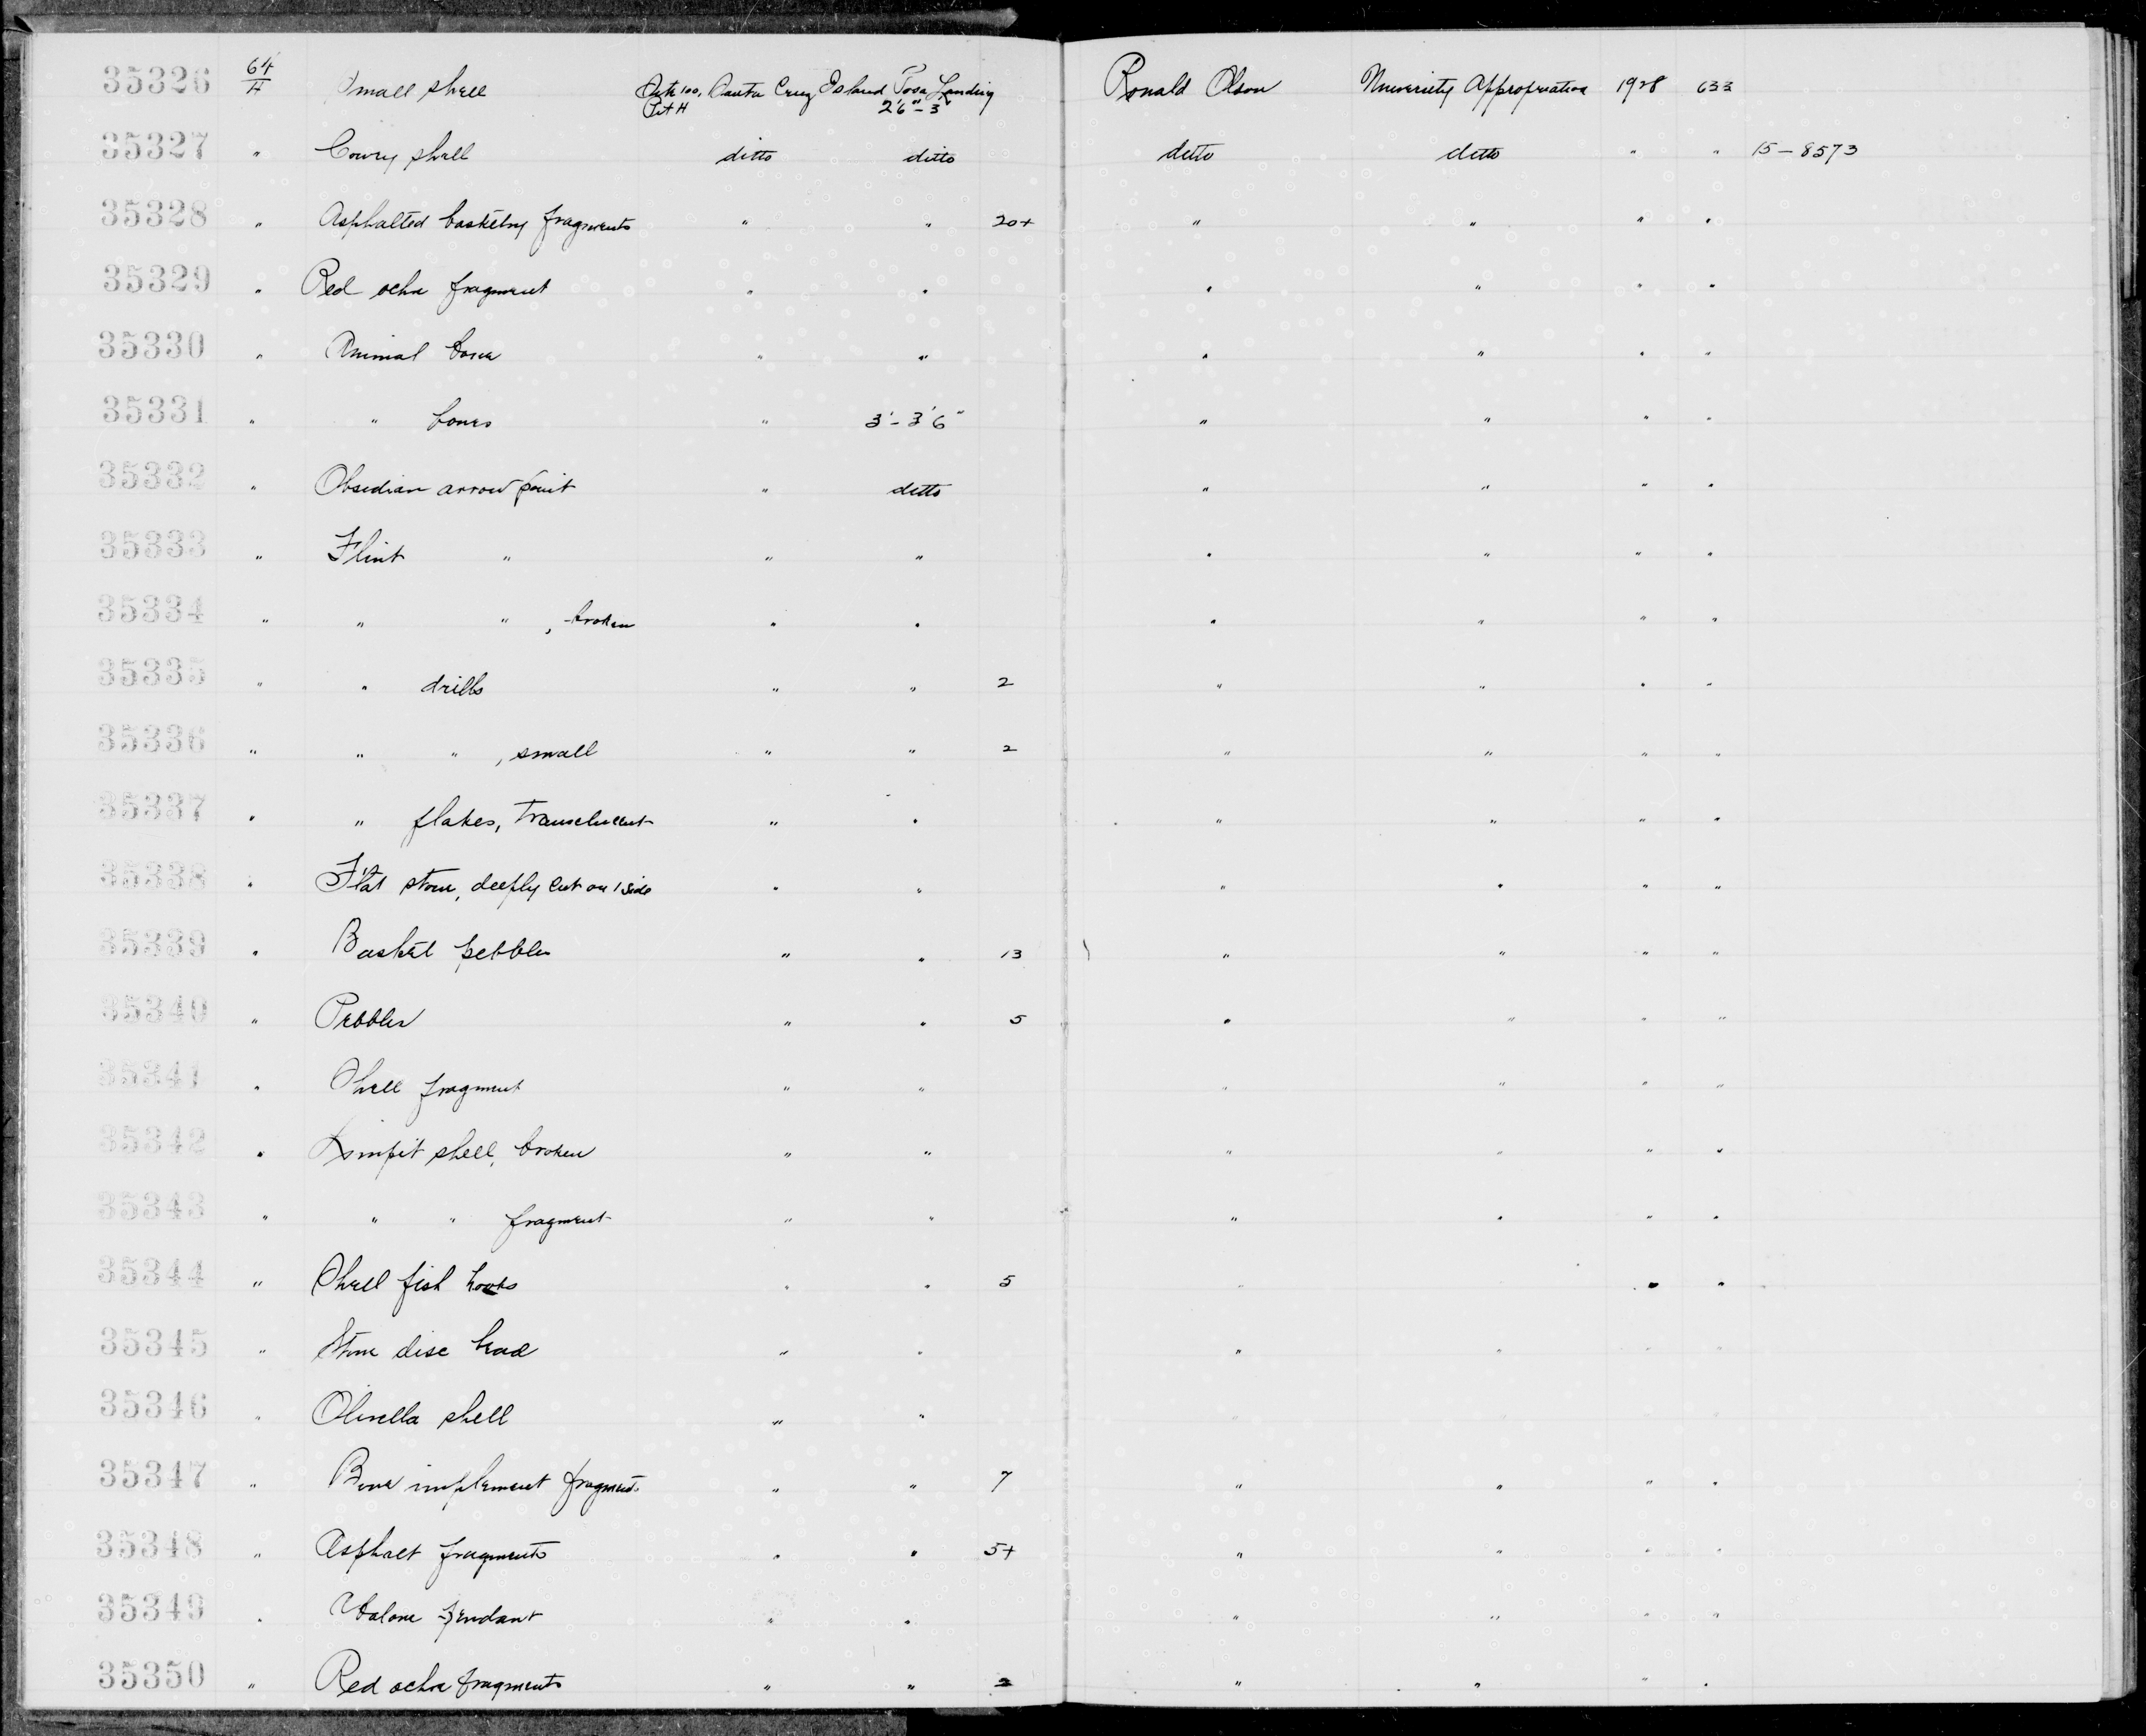 35326 64/4 Small shell Site 100, Santa Cruz Island Posa Landing Ronald Olson University Appropriation 1928 633
Pit H 2'6"-3'
35327 " Cowry shell ditto ditto ditto ditto " " 15-8573
35328 " Asphalted basketry fragments " " 20+ " " " "
35329 " Red ochre fragment " " " " " "
35330 " Animal bone " " " " " "
35331 " " bones " 3'-3'6" " " " "
35332 " Obsidian arrow point " ditto " " " "
35333 " Flint " " " " " " "
35334 " " " , broken " " " " " "
35335 " " drills " " 2 " " " "
35336 " " " , small " " 2 " " " "
35337 " " flakes, translucent " " " " " "
35338 " Flat stone, deeply cut on 1 side " " " " " "
35339 " Basket pebbles " " 13 " " " "
35340 " Pebbles " " 5 " " " "
35341 " Shell fragment " " " " " "
35342 " Limpit shell, broken " " " " " "
35343 " " " fragment " " " " " "
35344 " Shell fish hooks " " 5 " " "
35345 " Stone disc bead " " " " " "
35346 " Olivella shell " " " " " "
35347 " Bone implement fragments " " 7 " " " "
35348 " Asphalt fragments " " 5+ " " " "
35349 " Abalone pendant " " " " " "
35350 " Red ochre fragments " " 2 " " " "